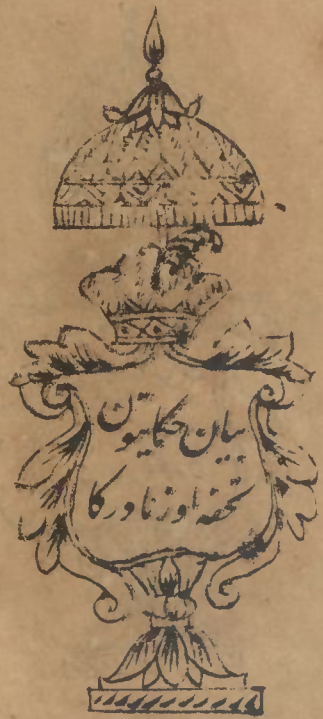 بیان حکایتوں
تحفہ اور نادر کا